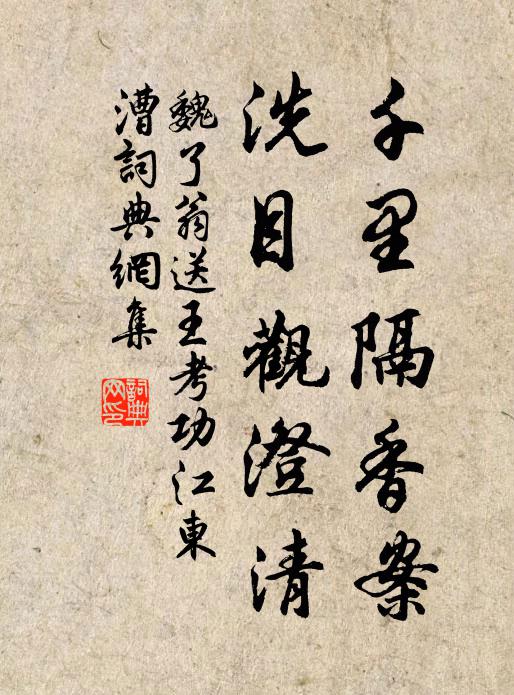 千里隔香案
洗目觀澄清
魏了翁送王考功江東
漕詞典網集
詞典网印